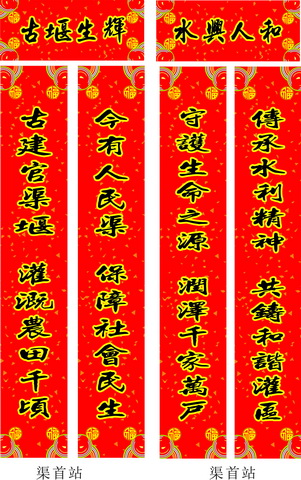 古堰生輝
古建官渠堰 灌溉農田千頃
今有人民渠 保障社會民生
渠首站
水興人和
守護生命之源 潤澤千家萬戶
傳承水利精神 共鑄和諧灌區
渠首站